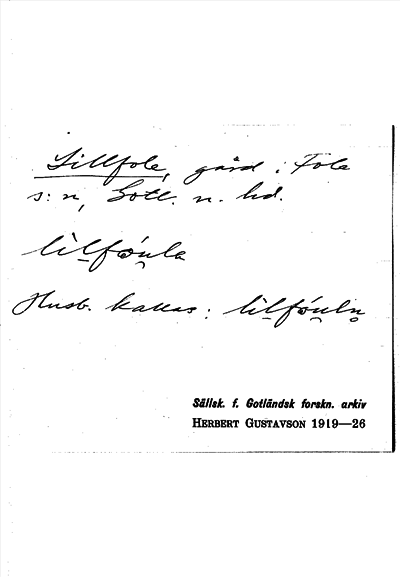 Lillfole, gård i Fole
s:n, Gotl. n. hd.
lìlfóu̯la
Husb. kallas: lilfóu̯ln̥
Sällsk. f. Gotländsk forskn. arkiv
HERBERT GUSTAVSON 1919—26